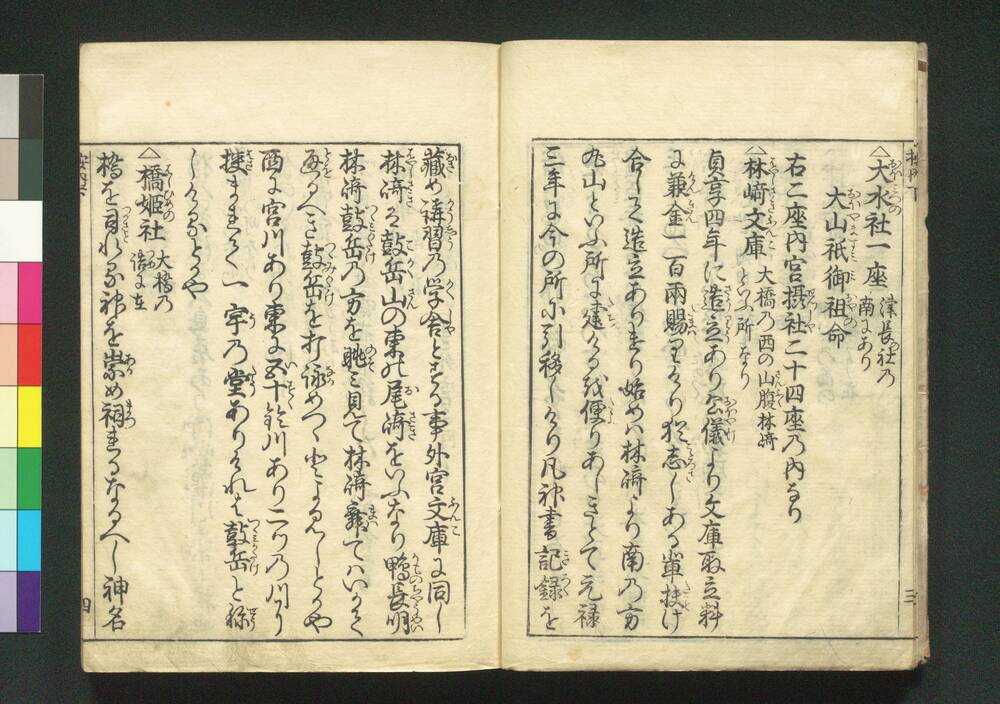 △大水社一座 津長社の
南にあり
大山祇御祖命
右二座内宮摂社二十四座乃内なり
△林﨑文庫 大橋乃西の山腹林﨑
といふ所なり
貞享四年に造立あり公儀より文庫取立料
に兼金一百両賜りけり然志しある輩扶け
合して造立ありけり始めハ林﨑より南乃方
丸山といふ所に建ける砌便りあしきとて元禄
三年に今の所に引移しけり凡神書記録を
蔵め講習乃学舎とする事外宮文庫に同し
林﨑ハ鼓岳山の東の尾﨑をいふなり鴨長明
林﨑鼓岳乃方を眺み見て林﨑舞てハいかて
通るへき鼓岳を打詠めつゝとよみしとかや
西に宮川あり東に五十鈴川あり二つ乃川り
挟まれて一宇乃堂ありけれは鼓岳と称
しけるとかや
△橋姫社 大橋乃
傍に在
橋を守れる神を崇め祠まるなるへし神名